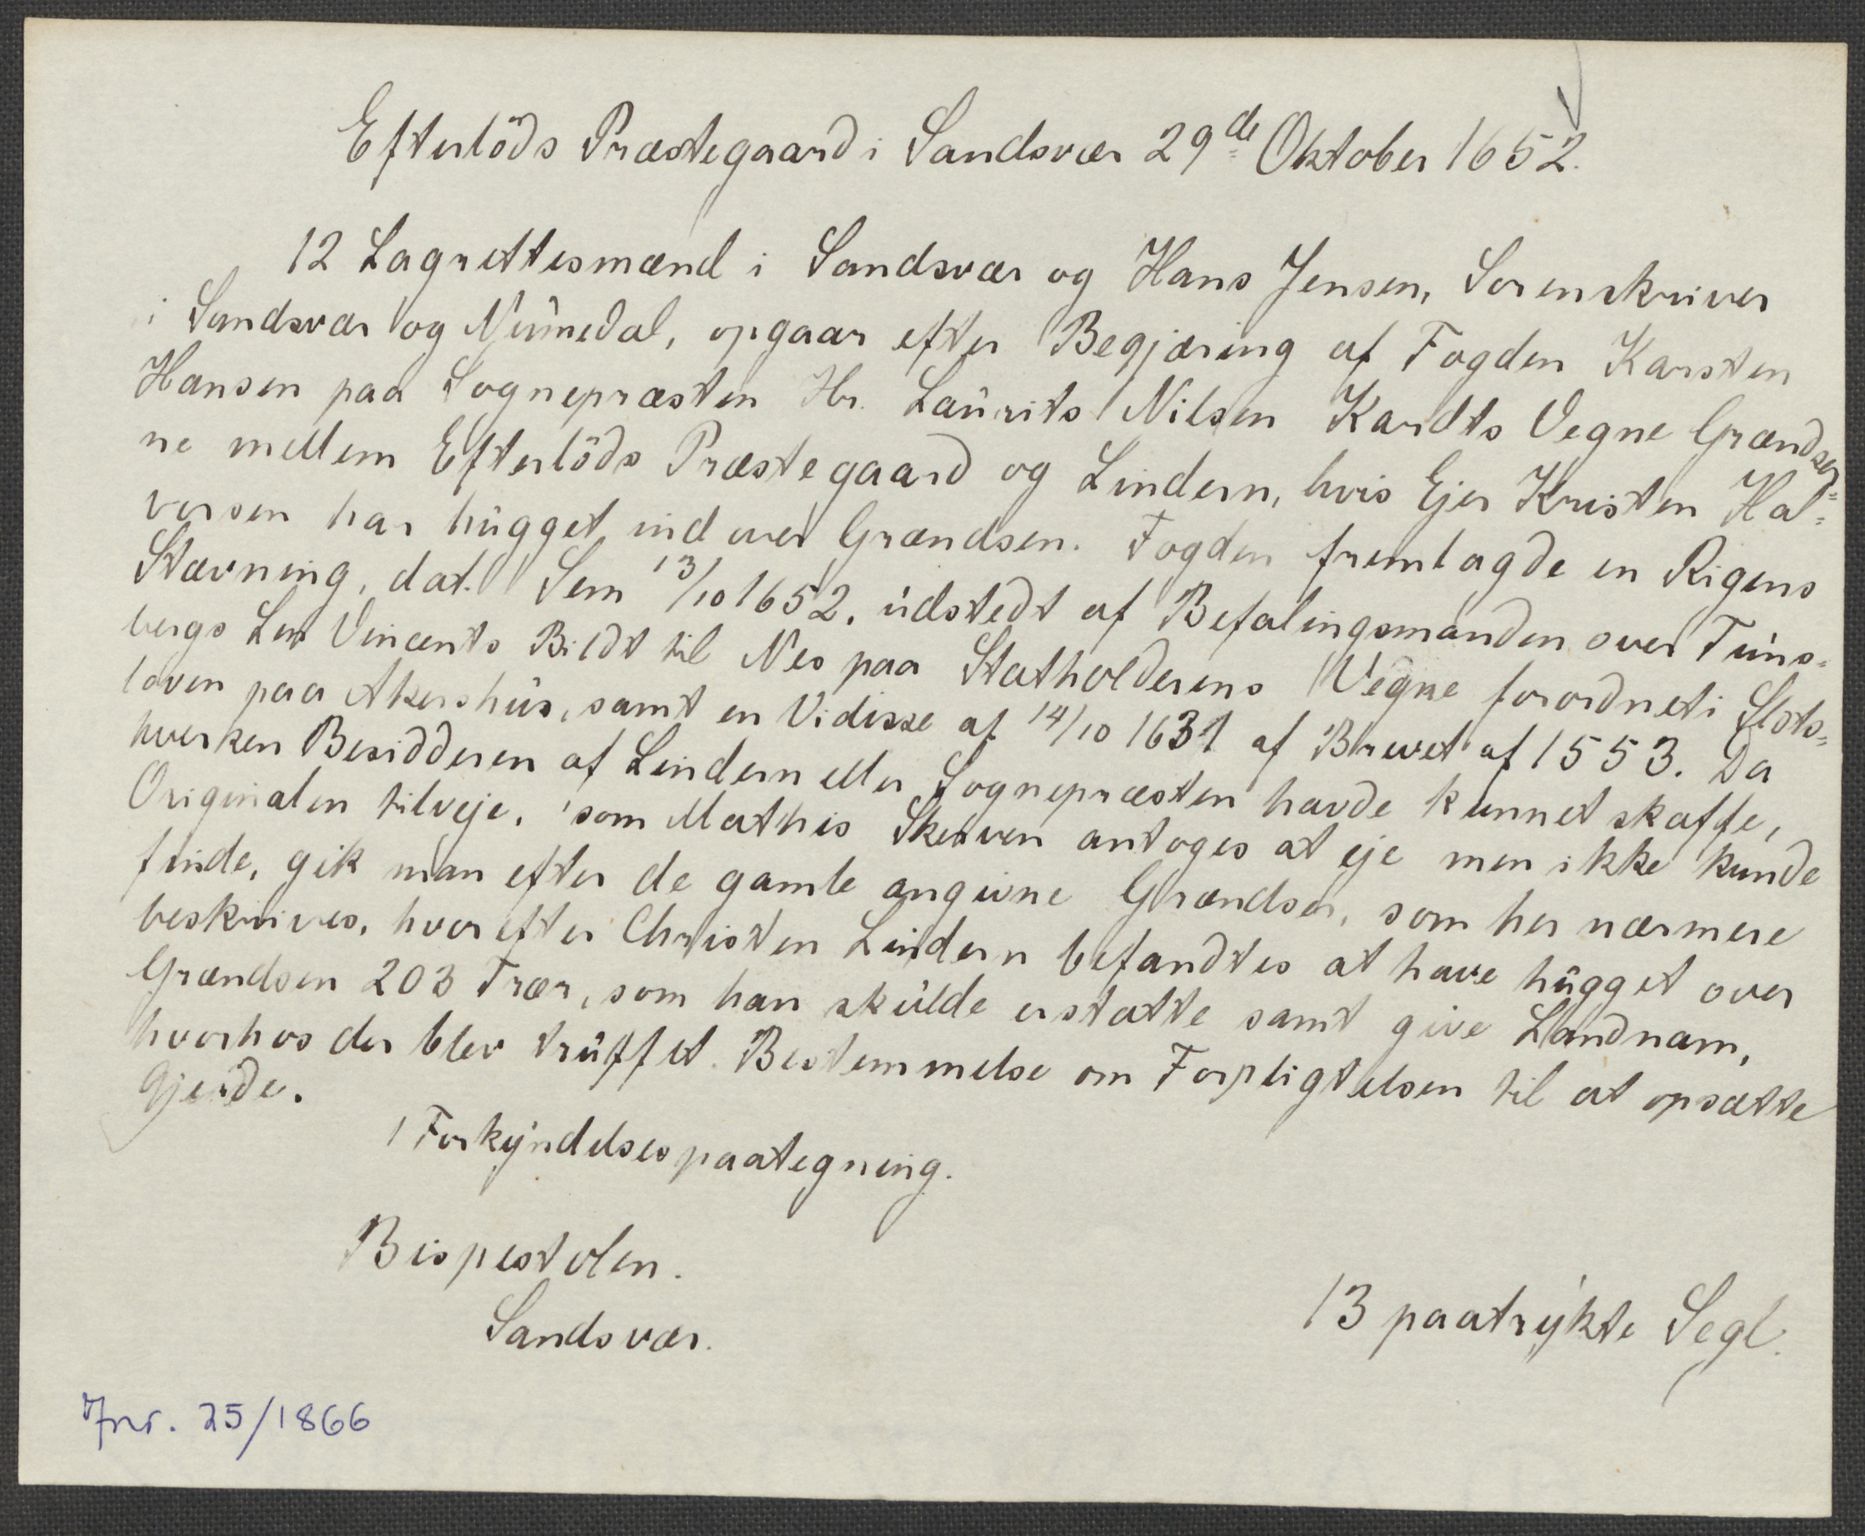 Efterlöds Præstegaard i Sandsvær 29de Oktober 1652.
12 Lagrettesmænd i Sandsvær og Hans Jensen, Sorenskriver
i Sandsvær og Nümedal, opgaar efter Begjæring af Fogden Karsten
Hansen paa Sognepræsten Hr. Laürits Nilsen Kardts Vegne Grændser=
ne mellem Efterlöds Præstegaard og Lindern, hvis Ejer Kristen Hal=
vorsen har hügget ind over Grændsen. Fogden fremlagde en Rigens
Stævning, dat. Sem 13/10 1652. üdstedt af Befalingsmanden over Tüns=
bergs Len Vincents Bildt til Nes paa Statholderens Vegne forordnet i Slots=
loven paa Akershüs, samt en Vidisse af 14/10 1631 af Brevet af 1553. Da
hverken Besidderen af Lindern eller Sognepræsten havde kunnet skaffe,
Originalen tilveje, som Mathis Skerven antoges at eje men ikke kunde
finde, gik man efter de gamle angivne Grændser, som her nærmere
beskrives, hvorefter Christen Lindern befandtes at have hügget over
Grændsen 203 Trær, som han skülde erstatte samt give Landnam,
hvorhos der blev trüffet Bestemmelse om Forpligtelsen til at opsætte
Gjerde.
1 Forkÿndelsespaategning.
Bispestolen.
Sandsvær.
13 paatrÿkte Segl.
Jnr. 25/1866